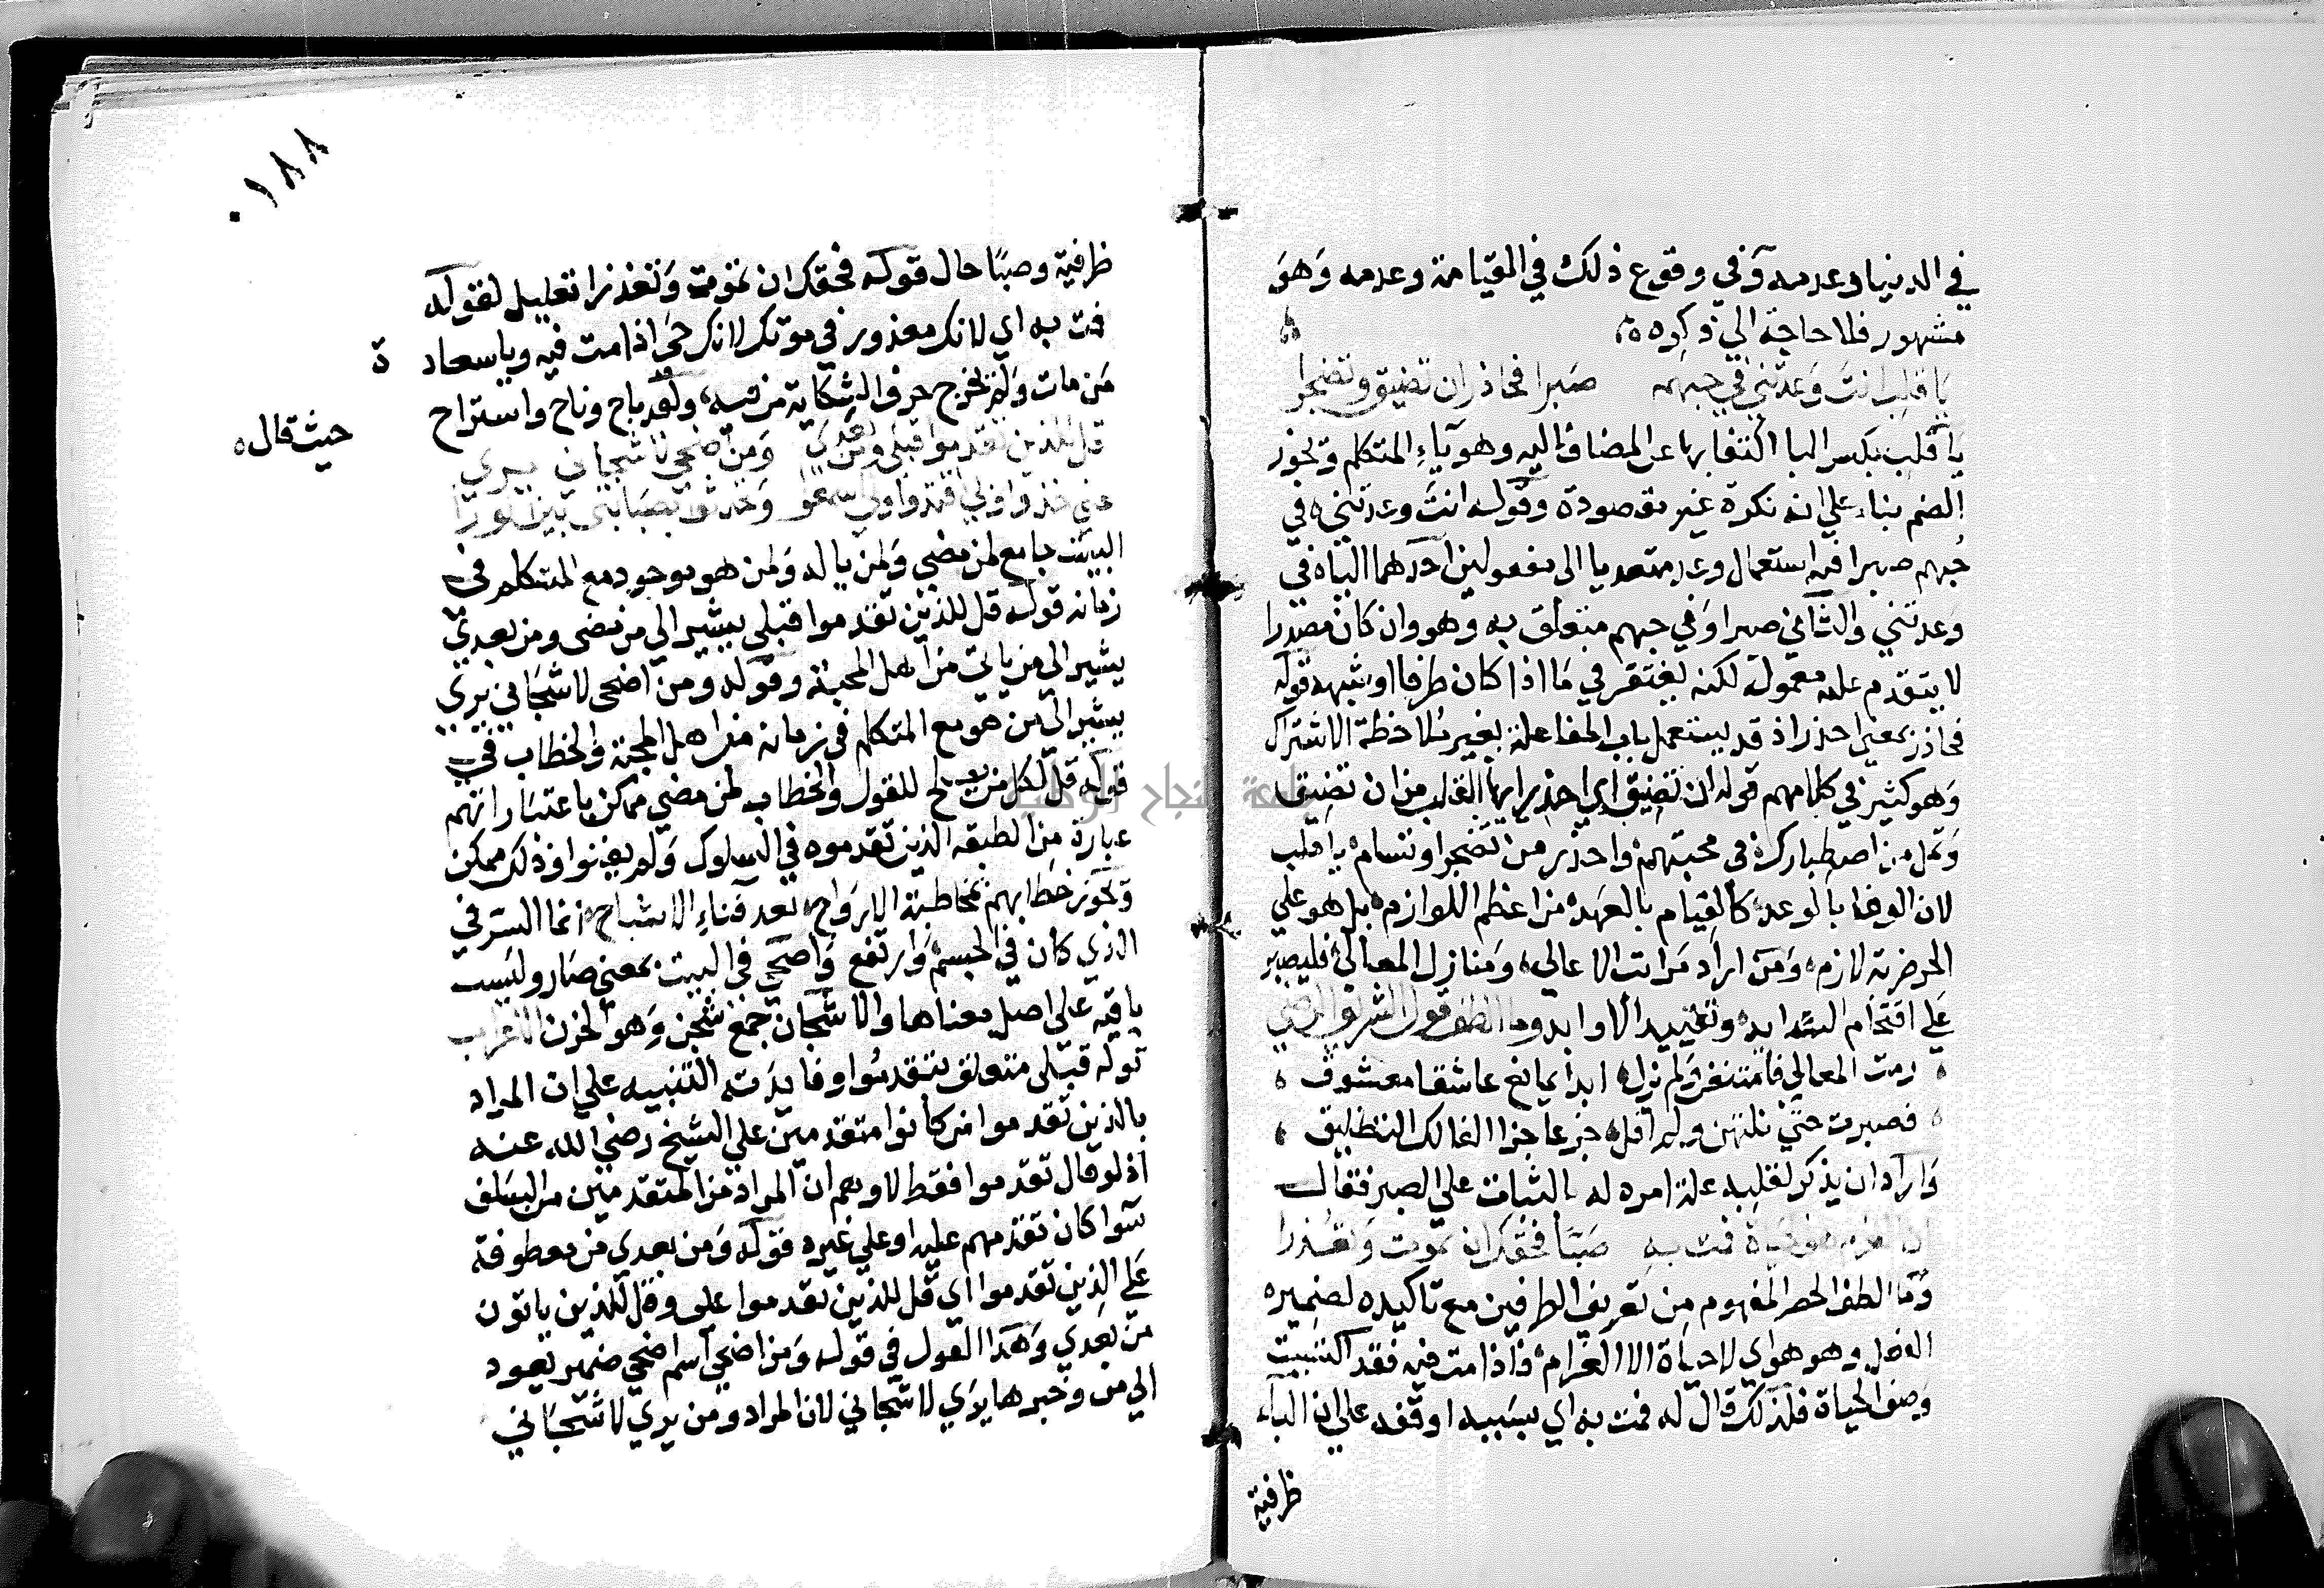 في الدنيا وعدمه وفي وقوع ذلك في القيامة وعدمه وهو
مشهور فلا حاجة الي ذكره
يا قلب انت وعدتني في حبهم صبرا فحاذر ان تضيق وتضجرا
يا قلب بكسر البا اكتفا بها عن المضاف اليه وهو ياء المتكلم ويجوز
الضم بناء علي انه نكرة غير مقصودة وقوله انت وعدتني في
حبهم صبرا فيه استعمال وعد متعديا الى مفعولين احدهما الياء في
وعدتني والثاني صبرا وفي حبهم متعلق به وهو وان كان مصدرا
لا يتقدم عليه معموله لكنه يغتفر في ما اذا كان ظرفا او شبهه قوله
فحاذر بمعني احذر اذ قد يستعمل باب المفاعلة بغير ملاحظة الاشتراك
وهو كثير في كلامهم قوله ان تضيق اي احذر ايها القلب من ان تضيق
وتمل من اصطبارك في محبتهم واحذر من تضجرا وتسام يا قلب
لان الوفا بالوعد كالقيام بالعهد من اعظم اللوازم بل هو علي
الحر ضربة لازم ومن اراد مراتب الاعالي ومنازل المعالي فليصبر
علي اقتحام الشدايد وتقييد الاوابد وما الطف قول الشريف الرضي
رمت المعالي فامتنعن ولم يزل ابدا يمانع عاشقا معشوق
فصبرت حتي نلتهن ولم اقل جزعا جزا الفالك التطليق
واراد ان يذكر لقلبه علة امره له بالثبات علي الصبر فقال
ان الغرام هو الحياة فمت به صبا فحقك ان تموت وتعذرا
وما الطف الحصر المفهوم من تعريف الطرفين مع تاكيده لضميره
الفصل وهو هو اي لا حياة الا الغرام فاذا مت فيه فقد اكتسبت
وصف الحياة فلذلك قال له فمت به اي بسببه او فيه علي ان الباء
ظرفية
١٨٨
ظرفية وصبا حال قوله فحقك ان تموت وتعذرا تعليل لقوله
فمت به اي لانك معذور في موتك لانك حي اذا مت فيه ويا سعادة
من مات ولم يخرج حرف الشكاية من فيه ولقد باح وناح واستراح
حيث قال
قل للذين تقدموا قبلي ومن بعدي ومن اضحي لاشجاني يري
عني خذوا وبي اقتدوا ولي اسمعوا وتحدثوا بصبابتي بين الورا
البيت جامع لمن مضي ولمن ياتي له ولمن هو موجود مع المتكلم في
زمانه قوله قل للذين تقدموا قبلي يشير الي من مضى ومن بعدي
يشير الى من ياتي من اهل المحبة وقوله ومن اضحى لاشجاني يري
يشير الي من هو مع المتكلم في زمانه من اهل المحبة والخطاب في
قوله قل لكل من يصلح للقول والخطاب لمن مضي ممكن باعتبار انهم
عبارة من الطبقه الذين تقدموه في السلوك ولم يفنوا وذلك ممكن
ويجوز خطابهم بمخاطبة الارواح بعد فناء الاشباح انما السر في
الذي كان في الجسم وارتفع واضحي في البيت بمعني صار وليست
باقيه علي اصل معناها والاشجان جمع شجن وهو الحزن الاعراب
قوله قبلي متعلق بتقدموا وفايدته التنبيه علي ان المراد
بالذين تقدموا من كانوا متقدمين علي الشيخ رضي الله عنه
اذ لو قال تقدموا فقط لاوهم ان المراد من المتقدمين من السلف
سوا كان تقدمهم عليه او علي غيره قوله ومن بعدي من معطوفة
علي الذين تقدموا اي قل للذين تقدموا علي وقل للذين ياتون
من بعدي وهذا القول في قوله ومن اضحي اسم اضحي ضمير يعود
الي من وخبرها يري لاشجاني لان المراد ومن يري لاشجاني